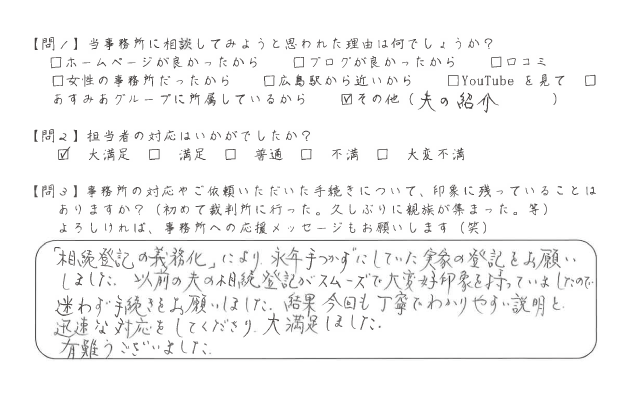 【問1】当事務所に相談してみようと思われた理由は何でしょうか？
□ホームページが良かったから　□ブログが良かったから　□口コミ
□女性の事務所だったから　□広島駅から近いから　□YouTube を見て　□
あすみあグループに所属しているから　☑その他（夫の紹介　）
【問2】担当者の対応はいかがでしたか？
☑ 大満足 □ 満足 □ 普通 □ 不満 □ 大変不満
【問3】事務所の対応やご依頼いただいた手続きについて、印象に残っていることは
ありますか？（初めて裁判所に行った。久しぶりに親族が集まった。等）
よろしければ、事務所への応援メッセージもお願いします（笑）
「相続登記の義務化」により、永年手つかずにしていた実家の登記をお願い
しました。以前の夫の相続登記がスムーズで大変好印象を持っていましたので
迷わず手続きをお願いしました。結果今回も丁寧でわかりやすい説明と
迅速な対応をしてくださり、大満足しました。
有難うございました。